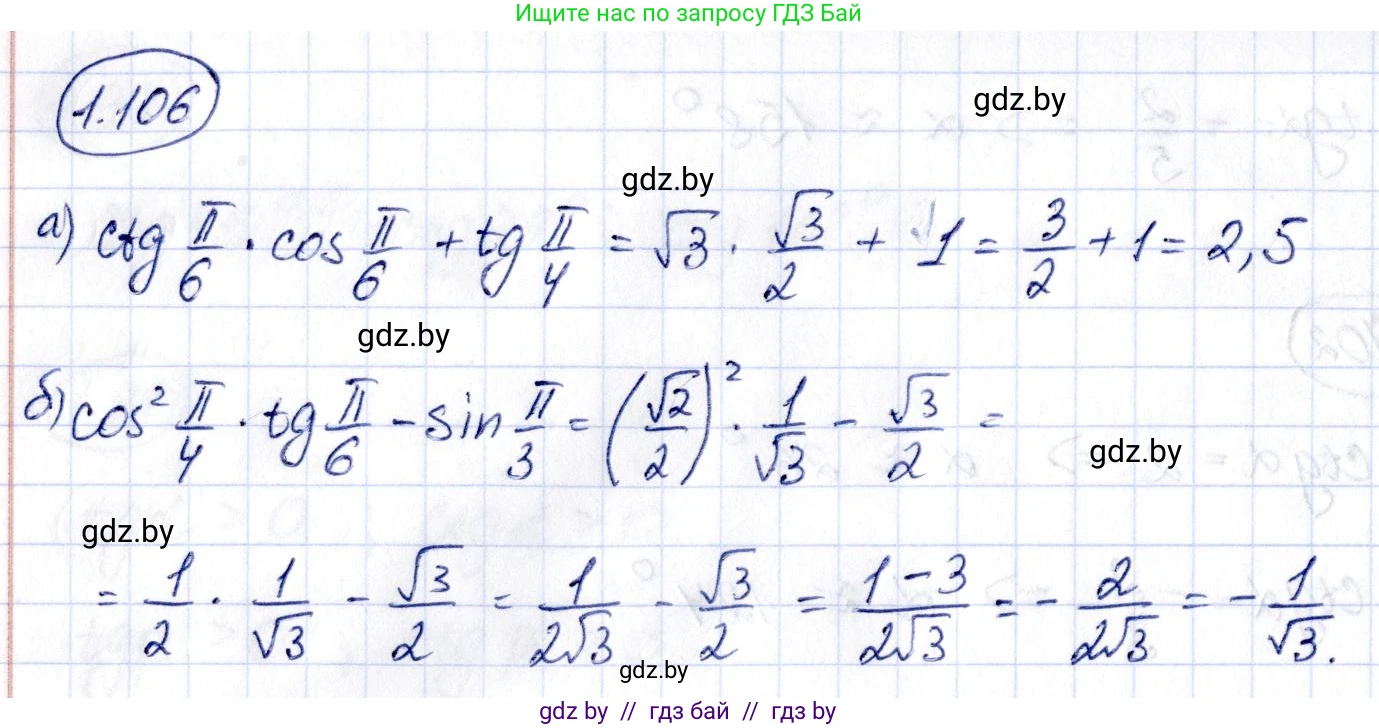 Ищите нас по запросу ГДЗ Бай
1.106
gdz.by
gdz.by
а) ctg π/6 · cos π/6 + tg π/4 = √3 · √3/2 + 1 = 3/2 + 1 = 2,5
gdz.by
б) cos² π/4 · tg π/6 - sin π/3 = (√2/2)² · 1/√3 - √3/2 =
gdz.by
gdz.by
= 1/2 · 1/√3 - √3/2 = 1/(2√3) - √3/2 = (1-3)/(2√3) = - 2/(2√3) = - 1/√3.
gdz.by
gdz.by // гдз бай // гдз by